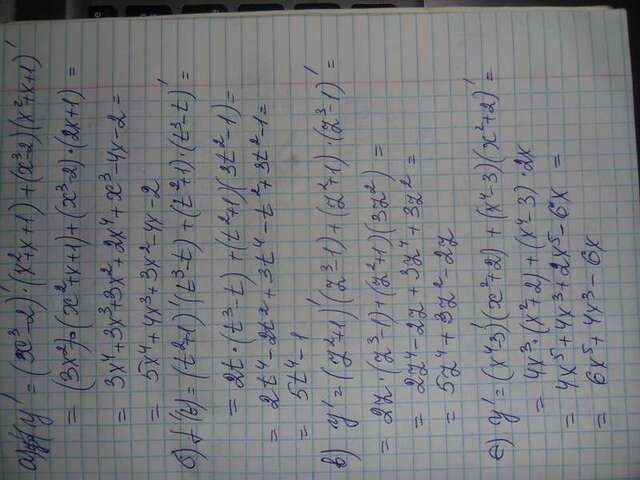 а) y' = (x³-2)'·(x²+x+1)+(x³-2)(x²+x+1)'
= (3x²)·(x²+x+1)+(x³-2)·(2x+1) =
= 3x⁴+3x³+3x²+2x⁴+x³-4x-2 =
= 5x⁴+4x³+3x²-4x-2
б) f'(t) = (t²+1)'(t³-t)+(t²+1)·(t³-t)' =
= 2t·(t³-t)+(t²+1)(3t²-1) =
= 2t⁴-2t²+3t⁴-t²+3t²-1 =
= 5t⁴-1
в) y' = (z²+1)'(z³-1)+(z²+1)·(z³-1)' =
= 2z·(z³-1)+(z²+1)(3z²) =
= 2z⁴-2z+3z⁴+3z² =
= 5z⁴+3z²-2z
е) y' = (x⁴-3)'(x²+2)+(x⁴-3)(x²+2)' =
= 4x³·(x²+2)+(x⁴-3)·2x
= 4x⁵+4x³+2x⁵-6x =
= 6x⁵+4x³-6x